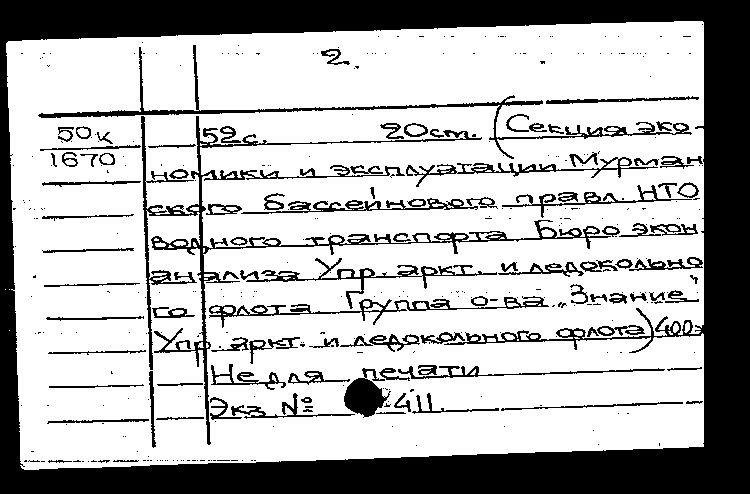 2.
50к
1670
52с. 20см. (Секция эко-
номики и эксплуатации Мурман
ского бассейнового правл. НТО
водного транспорта Бюро экон.
анализа Упр. аркт. и ледокольно
го флота Группа о-ва „Знание"
Упр. аркт. и ледокольного флота) 400э
Не для печати
Экз № 411.